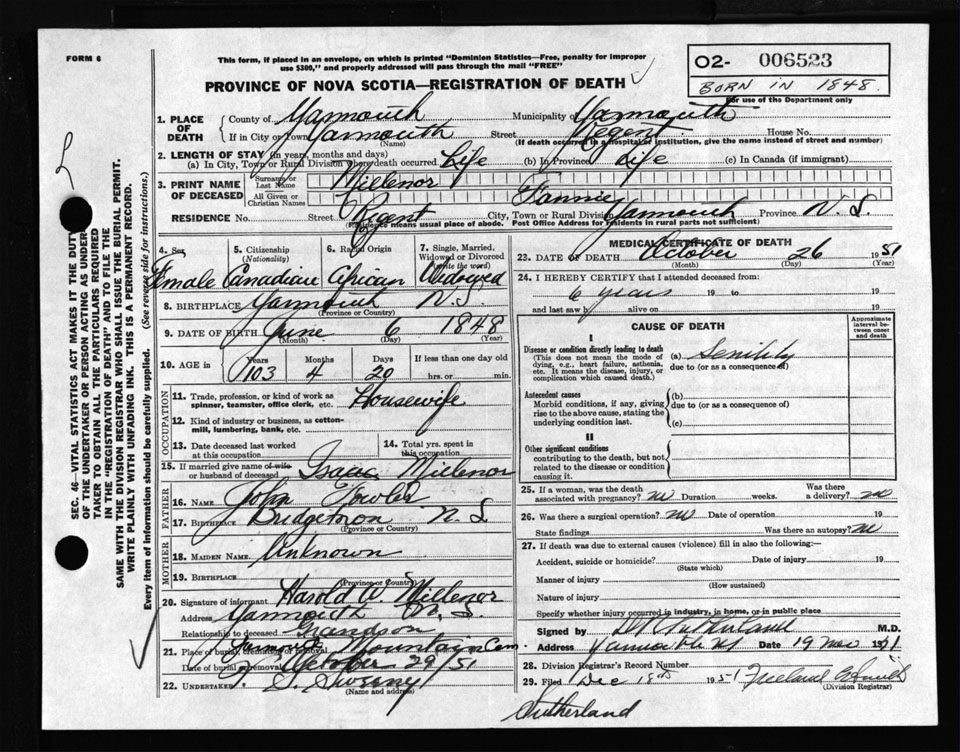 FORM 6
This form, if placed in an envelope, on which is printed "Dominion Statistics—Free, penalty for improper
use $300," and properly addressed will pass through the mail "FREE"
O2- 006523
BORN IN 1848.
For use of the Department only
PROVINCE OF NOVA SCOTIA—REGISTRATION OF DEATH
1. PLACE OF DEATH
County of Yarmouth Municipality of Yarmouth
If in City or Town Yarmouth (Name) Street Regent House No.
(If death occurred in a hospital or institution, give the name instead of street and number)
2. LENGTH OF STAY (in years, months and days)
(a) In City, Town or Rural Division where death occurred Life (b) In Province Life (c) In Canada (if immigrant)
3. PRINT NAME OF DECEASED
Surname or Last Name Millenor
All Given or Christian Names Fannie
RESIDENCE No. Street Regent City, Town or Rural Division Yarmouth Province N.S.
(Residence means usual place of abode. Post Office Address for residents in rural parts not sufficient)
4. Sex Female
5. Citizenship (Nationality) Canadian
6. Racial Origin African
7. Single, Married, Widowed or Divorced (Write the word) Widowed
8. BIRTHPLACE Yarmouth N.S.
(Province or Country)
9. DATE OF BIRTH June 6 1848
(Month) (Day) (Year)
10. AGE in Years 103 Months 4 Days 20 If less than one day old hrs. or min.
OCCUPATION
11. Trade, profession, or kind of work as spinner, teamster, office clerk, etc. Housewife
12. Kind of industry or business, as cotton-mill, lumbering, bank, etc.
13. Date deceased last worked at this occupation
14. Total yrs. spent in this occupation
15. If married give name of wife or husband of deceased Isaac Millenor
FATHER
16. NAME John Fowler
17. BIRTHPLACE Bridgetown N.S.
(Province or Country)
MOTHER
18. MAIDEN NAME Unknown
19. BIRTHPLACE
(Province or Country)
20. Signature of informant Harold W. Millenor
Address Yarmouth N.S.
Relationship to deceased Grandson
21. Place of burial, cremation or removal Mountain Cem.
Date of burial or removal October 29/51
22. UNDERTAKER Sweeny
(Name and address)
MEDICAL CERTIFICATE OF DEATH
23. DATE OF DEATH October 26 1951
(Month) (Day) (Year)
24. I HEREBY CERTIFY that I attended deceased from:
6 years 19 to 19
and last saw h alive on 19
CAUSE OF DEATH
Approximate interval between onset and death
I
Disease or condition directly leading to death
(This does not mean the mode of dying, e.g., heart failure, asthenia, etc. It means the disease, injury, or complication which caused death.)
(a) Senility
due to (or as a consequence of)
Antecedent causes
Morbid conditions, if any, giving rise to the above cause, stating the underlying condition last.
(b)
due to (or as a consequence of)
(c)
II
Other significant conditions
contributing to the death, but not related to the disease or condition causing it.
25. If a woman, was the death associated with pregnancy? no Duration weeks. Was there a delivery? no
26. Was there a surgical operation? no Date of operation 19
State findings Was there an autopsy? no
27. If death was due to external causes (violence) fill in also the following:—
Accident, suicide or homicide? Date of injury 19
(State which)
Manner of injury
(How sustained)
Nature of injury
Specify whether injury occurred in industry, in home, or in public place
Signed by Sutherland M.D.
Address Yarmouth NS Date 19 Nov 1951
28. Division Registrar's Record Number
29. Filed Dec 18th 1951
(Division Registrar)
Sutherland
SEC. 46—VITAL STATISTICS ACT MAKES IT THE DUTY
OF THE UNDERTAKER OR PERSON ACTING AS UNDER-
TAKER TO OBTAIN ALL THE PARTICULARS REQUIRED
IN THE "REGISTRATION OF DEATH" AND TO FILE THE
SAME WITH THE DIVISION REGISTRAR WHO SHALL ISSUE THE BURIAL PERMIT.
WRITE PLAINLY WITH UNFADING INK. THIS IS A PERMANENT RECORD.
Every item of information should be carefully supplied. (See reverse side for instructions.)